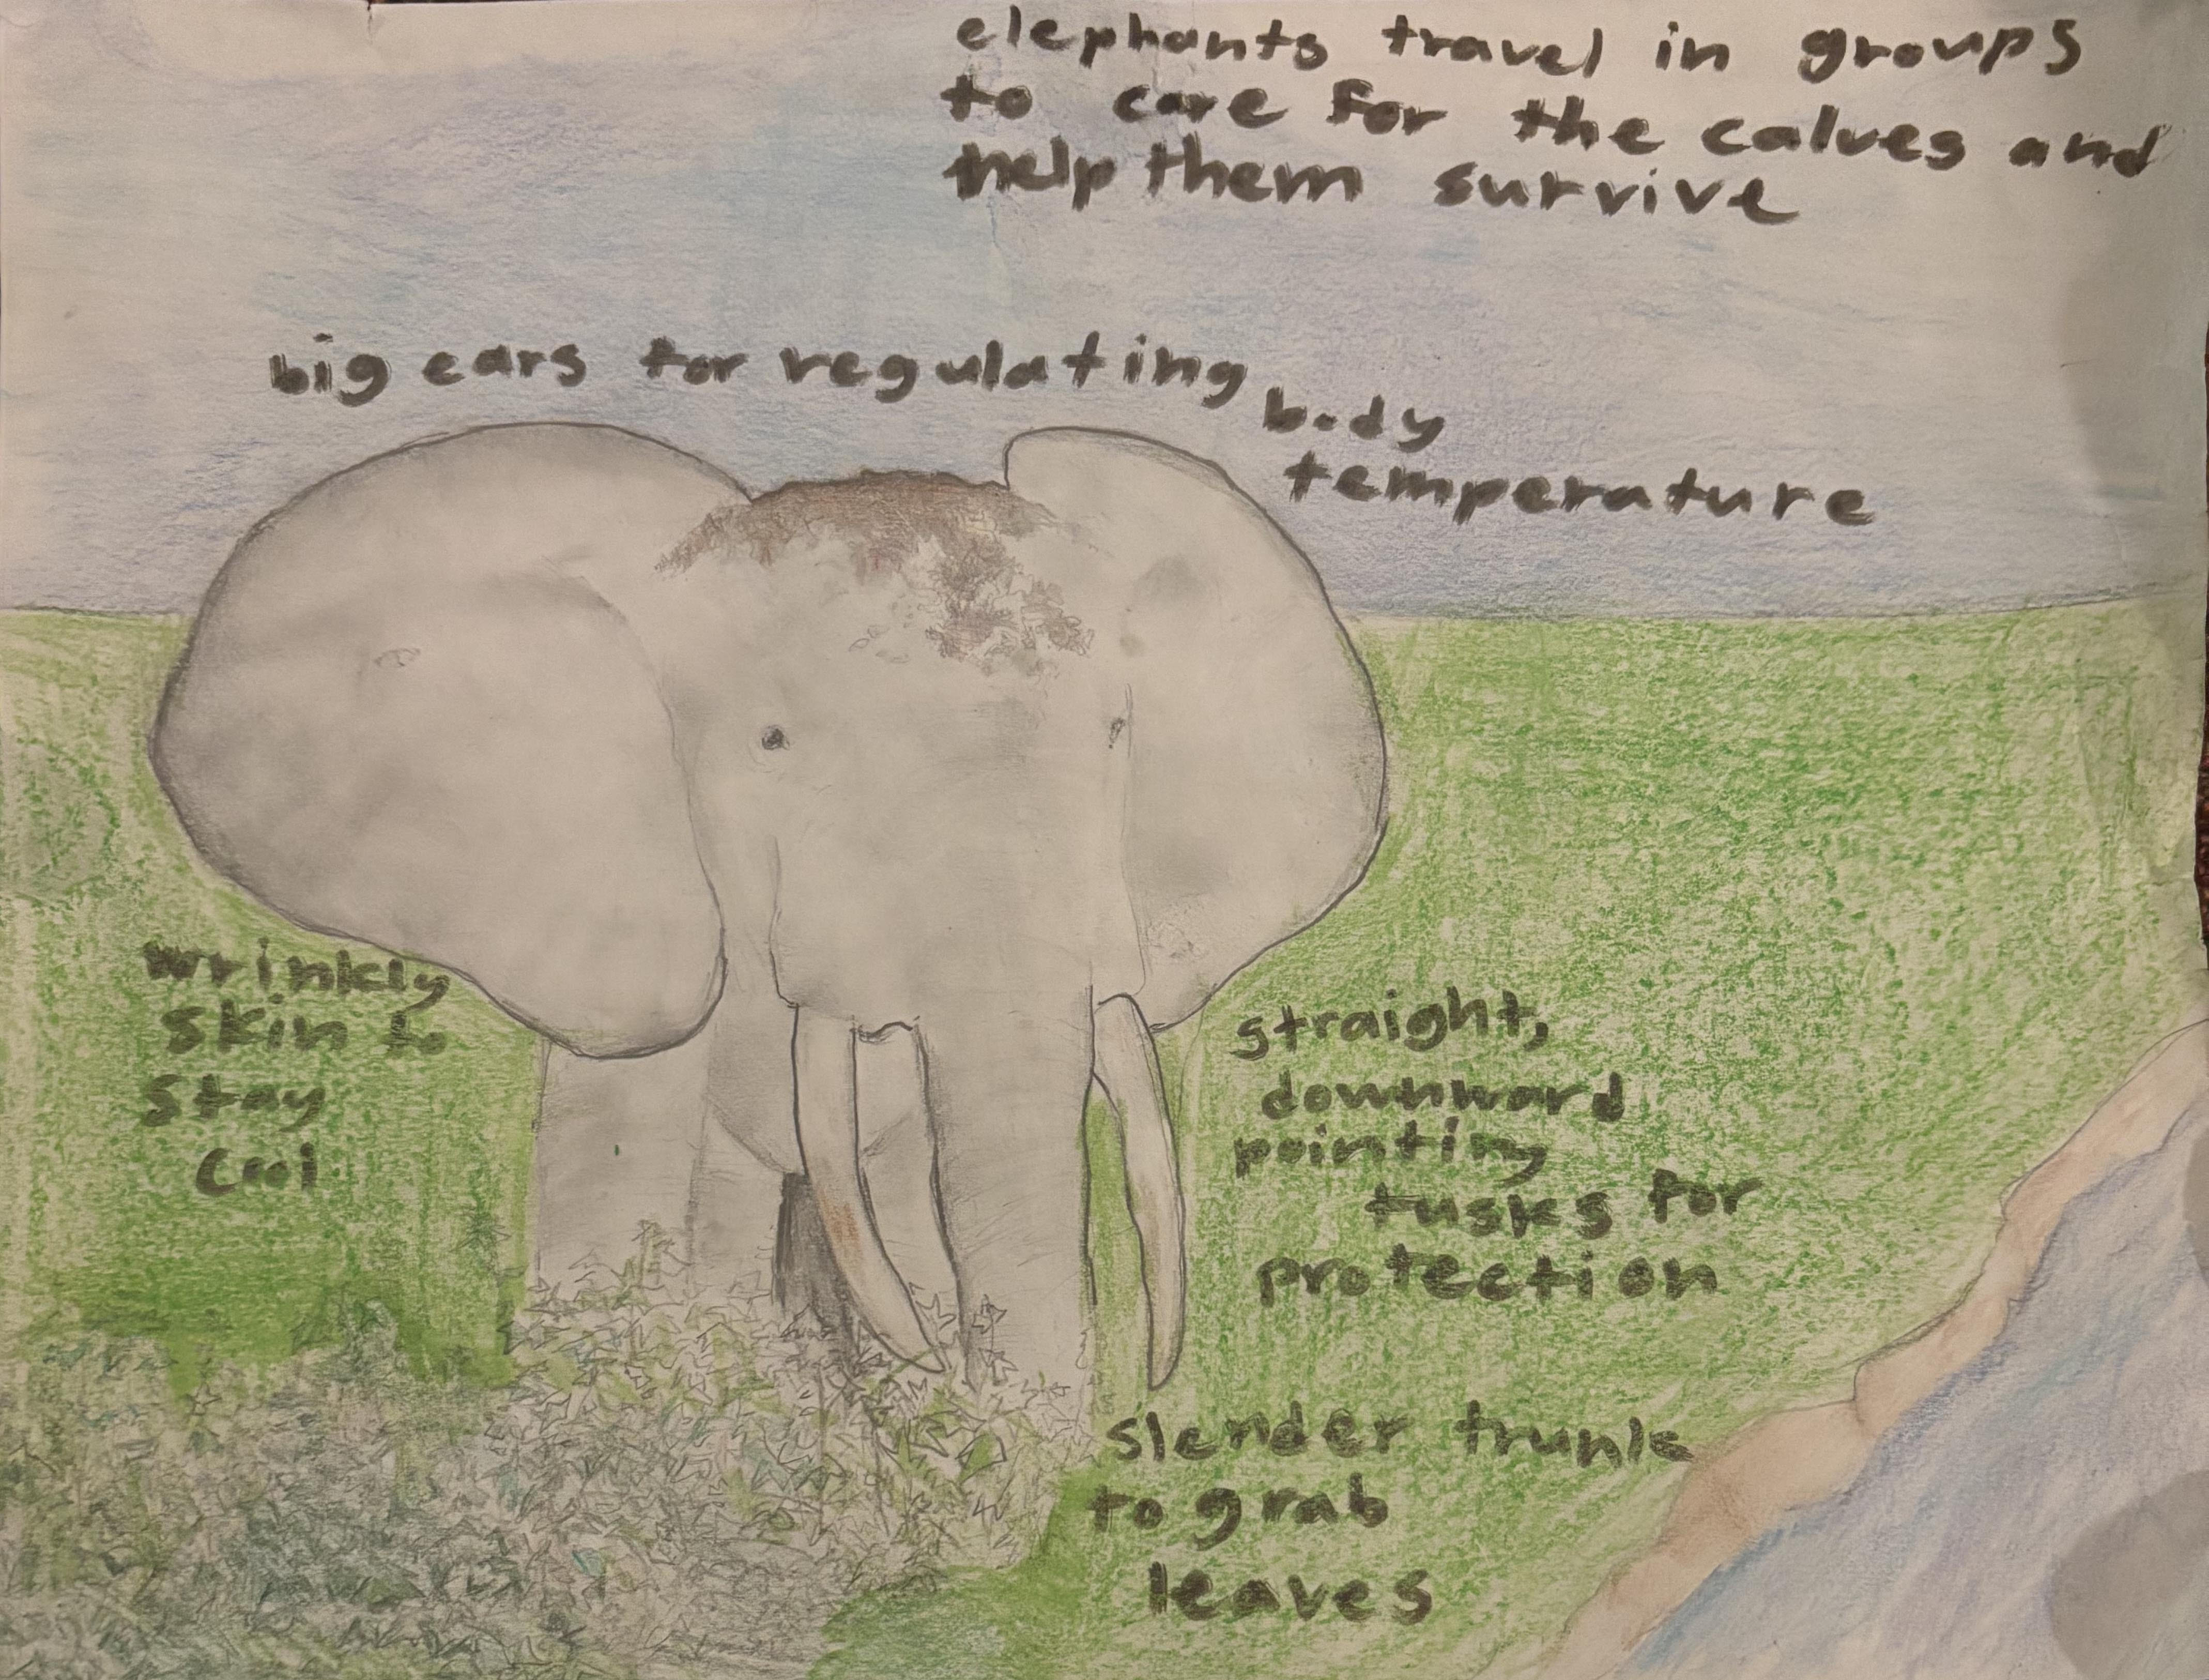 elephants travel in groups
to care for the calves and
help them survive
big ears for regulating
body
temperature
wrinkly
skin to
stay
cool
straight,
downward
pointing
tusks for
protection
slender trunk
to grab
leaves